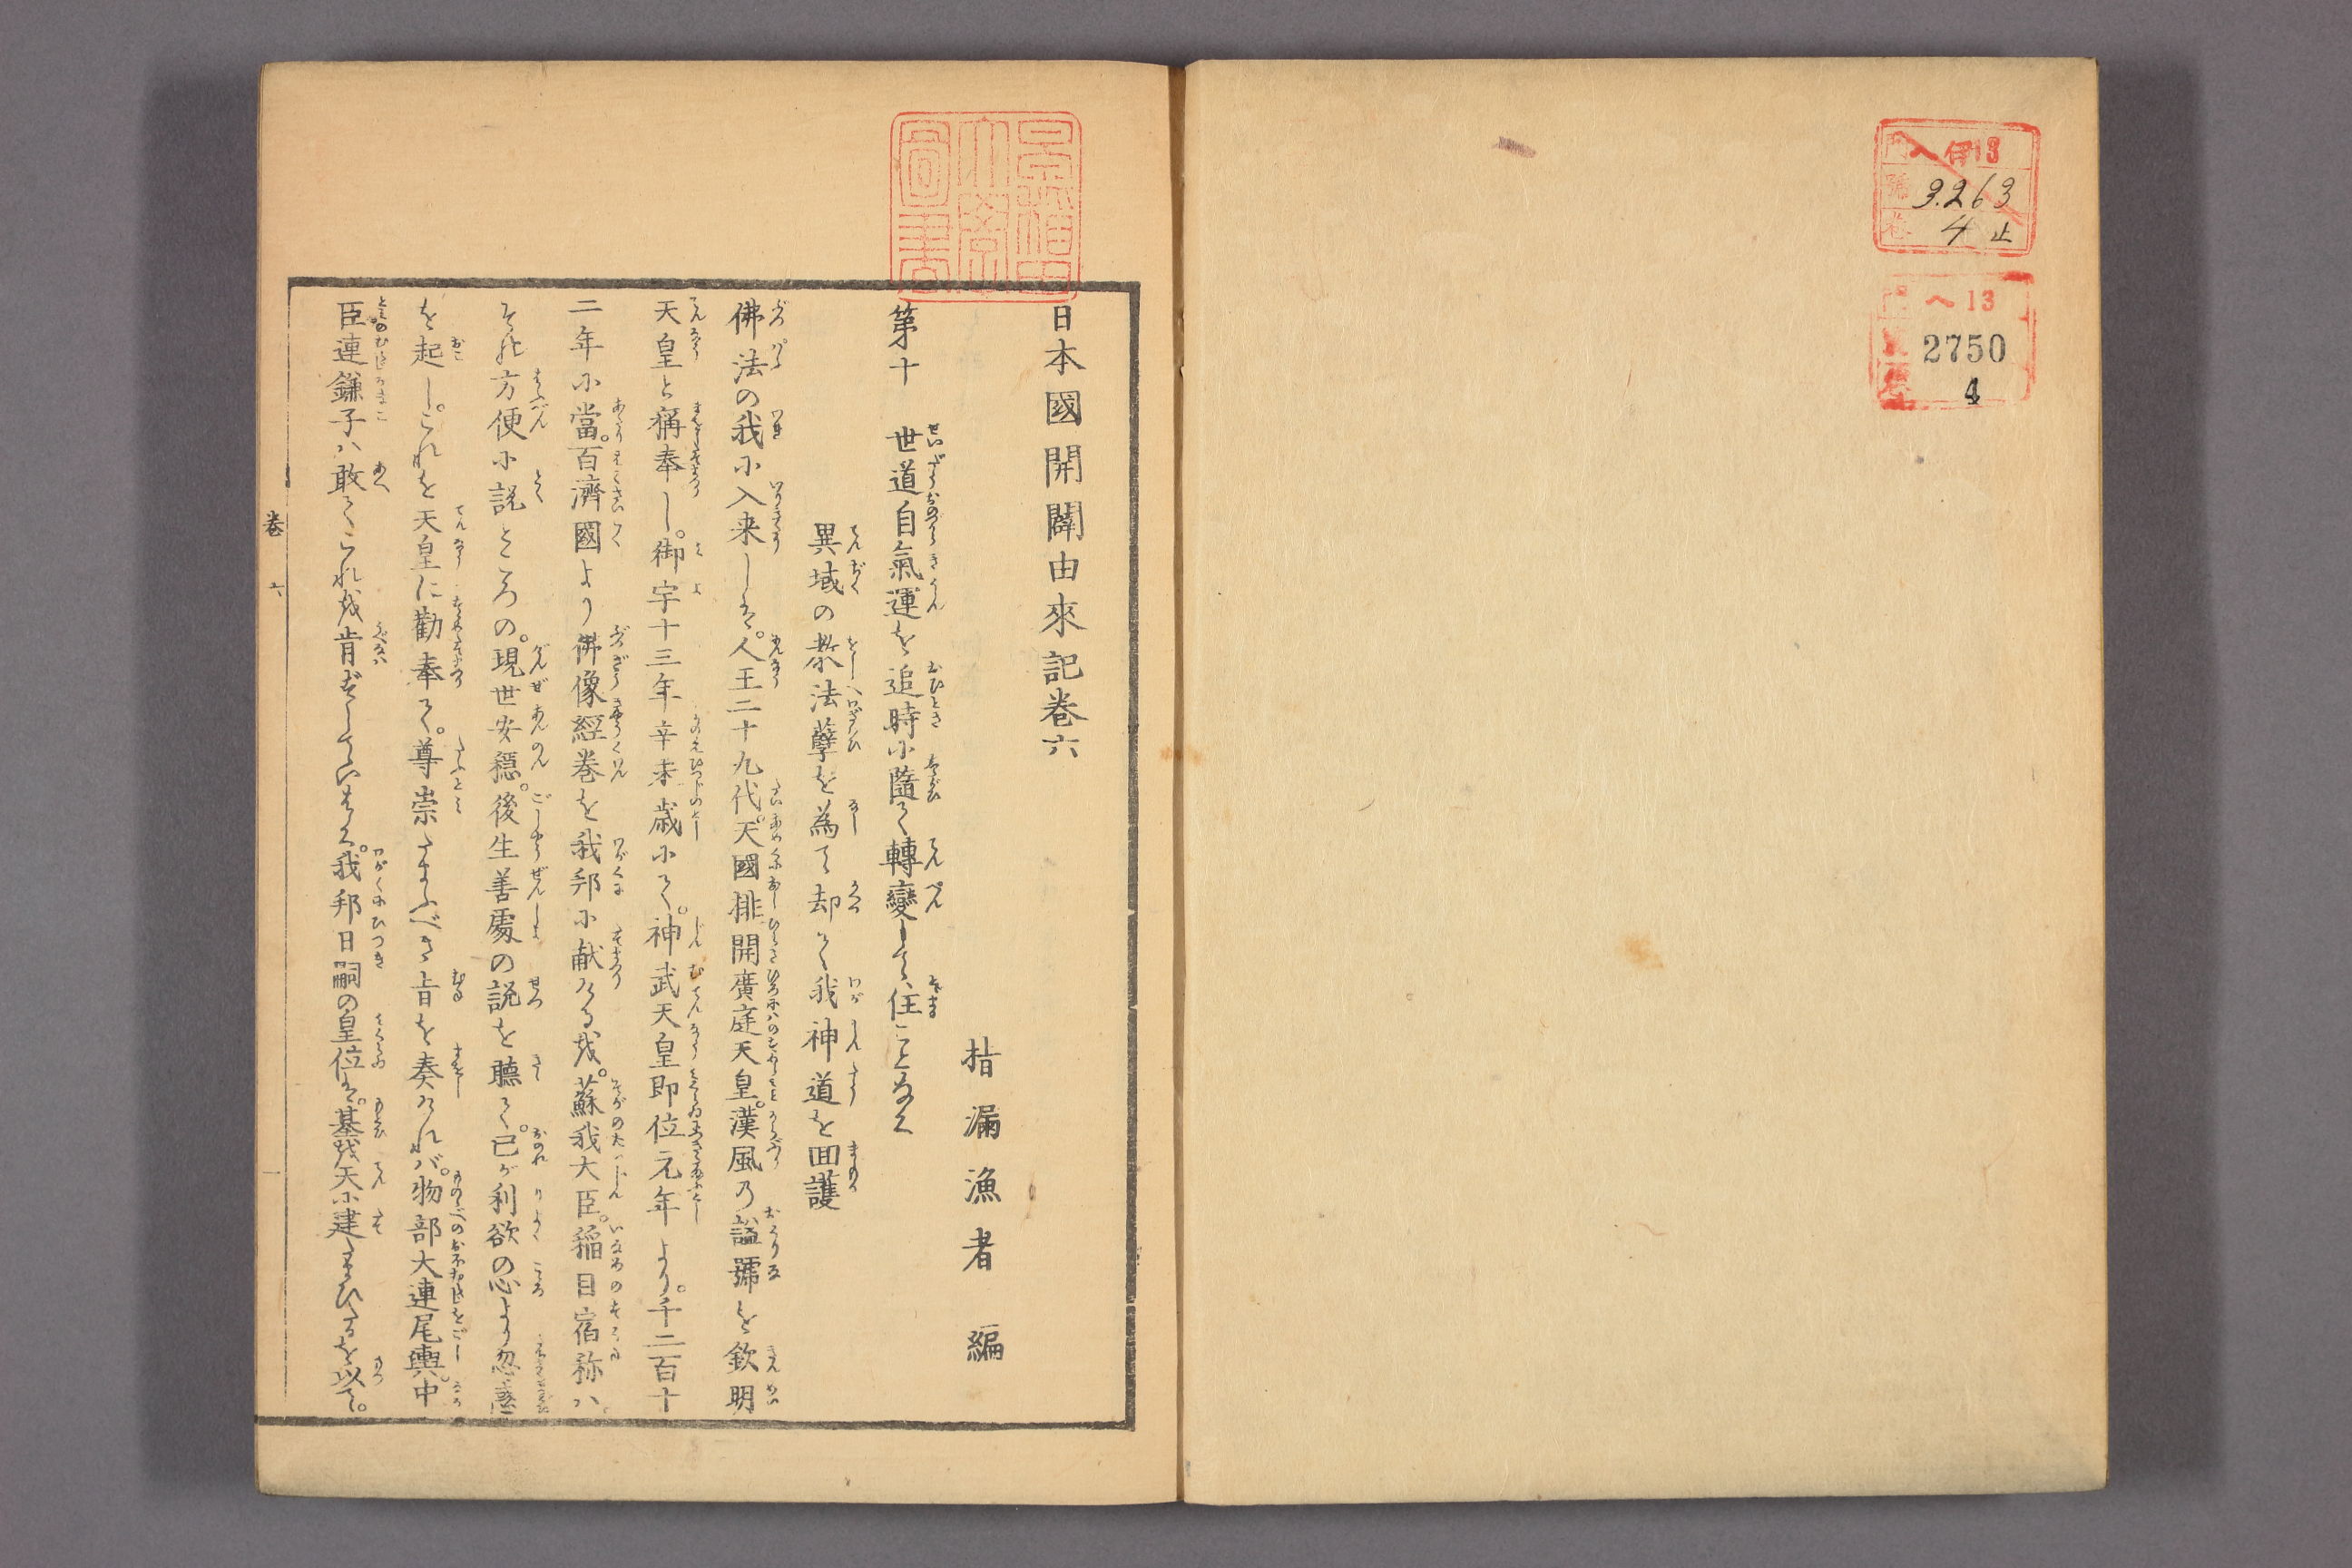 門 ヘ 伊 13
號 3263
卷 4 止
ヘ 13
2750
4
早稲田大學圖書
日本國開闢由來記卷六
桔漏漁者 編
第十 世道自氣運を追時に隨て轉變して住ことなく
異域の教法孽を為て却て我神道を回護
佛法の我に入来しは。人王二十九代。天國排開廣庭天皇。漢風乃謚號を欽明
天皇と稱奉し。御宇十三年辛未歳にて。神武天皇即位元年より。千二百十
二年に當。百濟國より佛像經巻を我邦に献ける我。蘇我大臣。稲目宿祢ハ。
それ方便に説ところの。現世安穏。後生善處の説を聽て。已が利欲の心より忽惑
を起し。これを天皇に勸奉て。尊崇たまふべき旨を奏けれバ。物部大連尾輿。中
臣連鎌子ハ敢てこれ越肯ぜずしていはく。我邦日嗣の皇位は。基越天に建たまひたるを以て。
卷 六 一